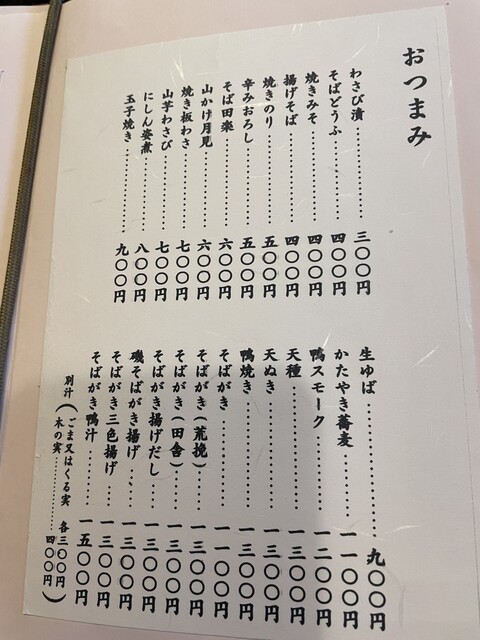 おつまみ
わさび漬…………三〇〇円
そばどうふ…………四〇〇円
焼きみそ…………四〇〇円
揚げそば…………四〇〇円
焼きのり…………五〇〇円
辛みおろし…………五〇〇円
そば田楽…………六〇〇円
山かけ月見…………六〇〇円
焼き板わさ…………七〇〇円
山芋わさび…………七〇〇円
にしん姿煮…………八〇〇円
玉子焼き…………九〇〇円
生ゆば…………九〇〇円
かたやき蕎麦…………一一〇〇円
鴨スモーク…………一二〇〇円
天種…………一三〇〇円
天ぬき…………一三〇〇円
鴨焼き…………一三〇〇円
そばがき…………一一〇〇円
そばがき（荒挽）…………一三〇〇円
そばがき（田舎）…………一三〇〇円
そばがき揚げだし…………一三〇〇円
磯そばがき揚げ…………一三〇〇円
そばがき三色揚げ…………一三〇〇円
そばがき鴨汁…………一五〇〇円
別汁（ごま又はくる実 各三〇〇円
木の実…………四〇〇円）